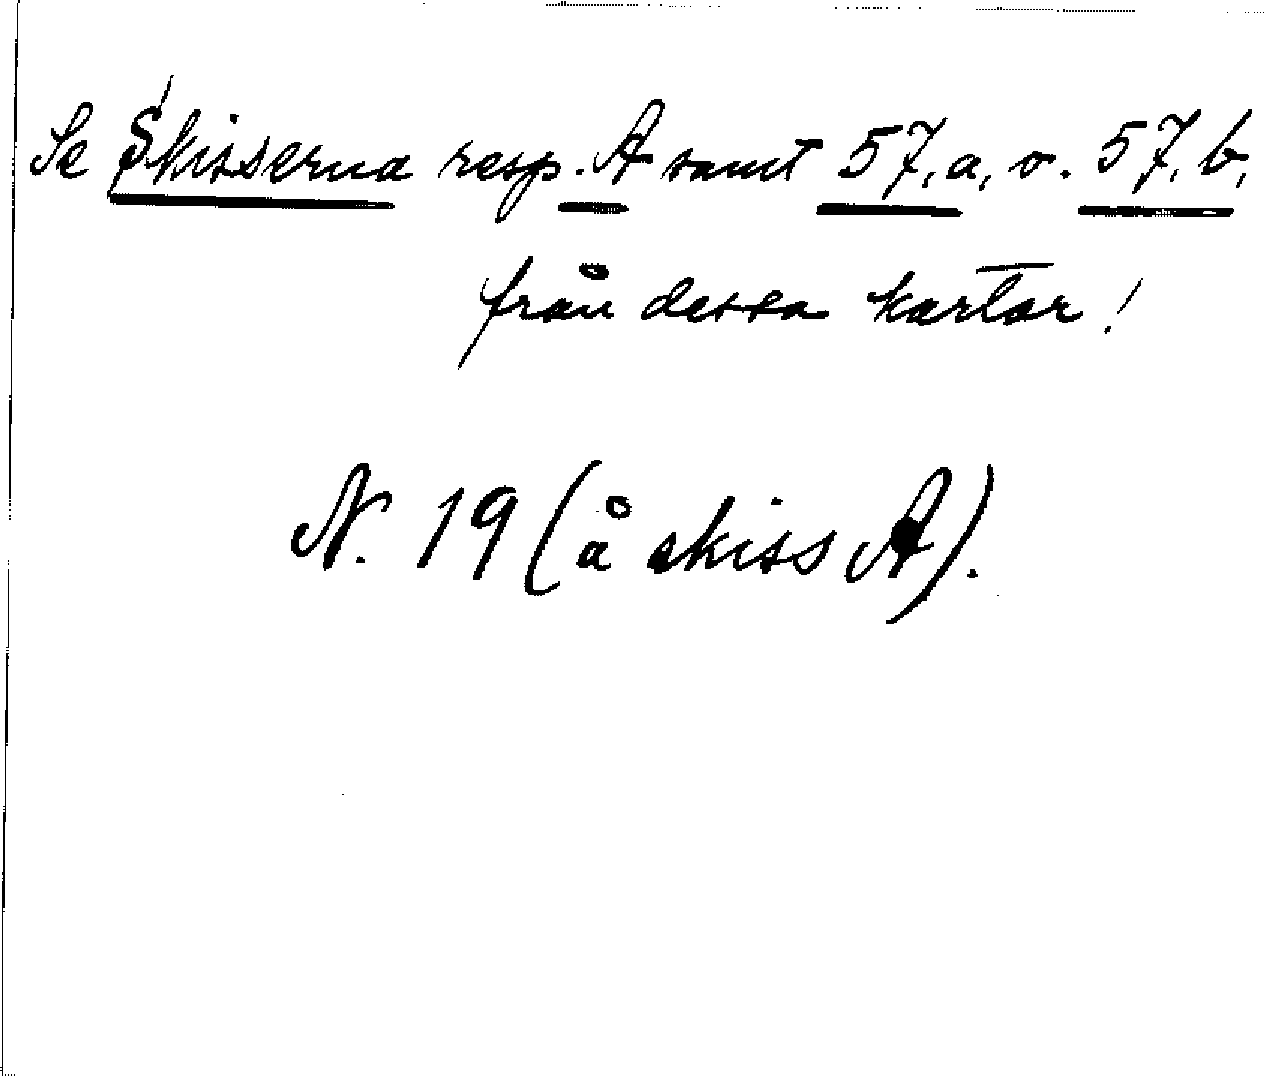 Se Skisserna resp. A samt 57, a, o. 57, b,
från dessa kartor!
N. 19 (å skiss A).